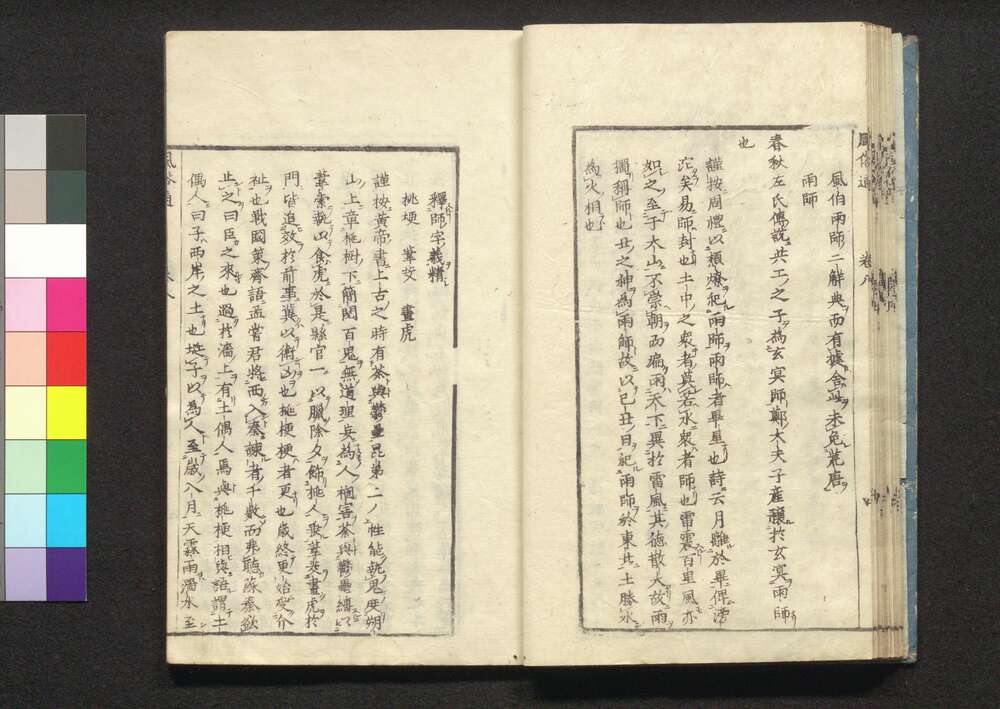 風俗通 卷八
風伯雨師二解典而有據舍此未免荒唐
雨師
春秋左氏傳說共工之子為玄冥師鄭大夫子產禳於玄冥雨師
也
謹按周禮以槱燎祀雨師雨師者畢星也詩云月離於畢俾滂
沱矣易師封也土中之衆者莫若水衆者師也雷震百里風亦
如之至于太山不崇朝而遍雨天下異於雷風其德散大故雨
獨稱師也丑之神為雨師故以己丑日祀雨師於東北土勝水
為火相也
釋師字義精
桃梗 葦茭 畫虎
謹按黃帝書上古之時有荼與鬱壘昆弟二人性能執鬼度朔
山上章桃樹下簡閱百鬼無道理妄為人禍害荼與鬱壘縛以
葦索執以食虎於是縣官一以臘除夕飾桃人垂葦茭畫虎於
門皆追效於前事冀以衛凶也桃梗梗者更也歲終更始受介
祉也戰國策齊語孟嘗君將西入秦諫者千數而弗聽蘇秦欲
止之曰臣之來也過於淄上有土偶人焉與桃梗相與語謂土
偶人曰子西岸之土也埏子以為人至歲八月天霖雨濁水至